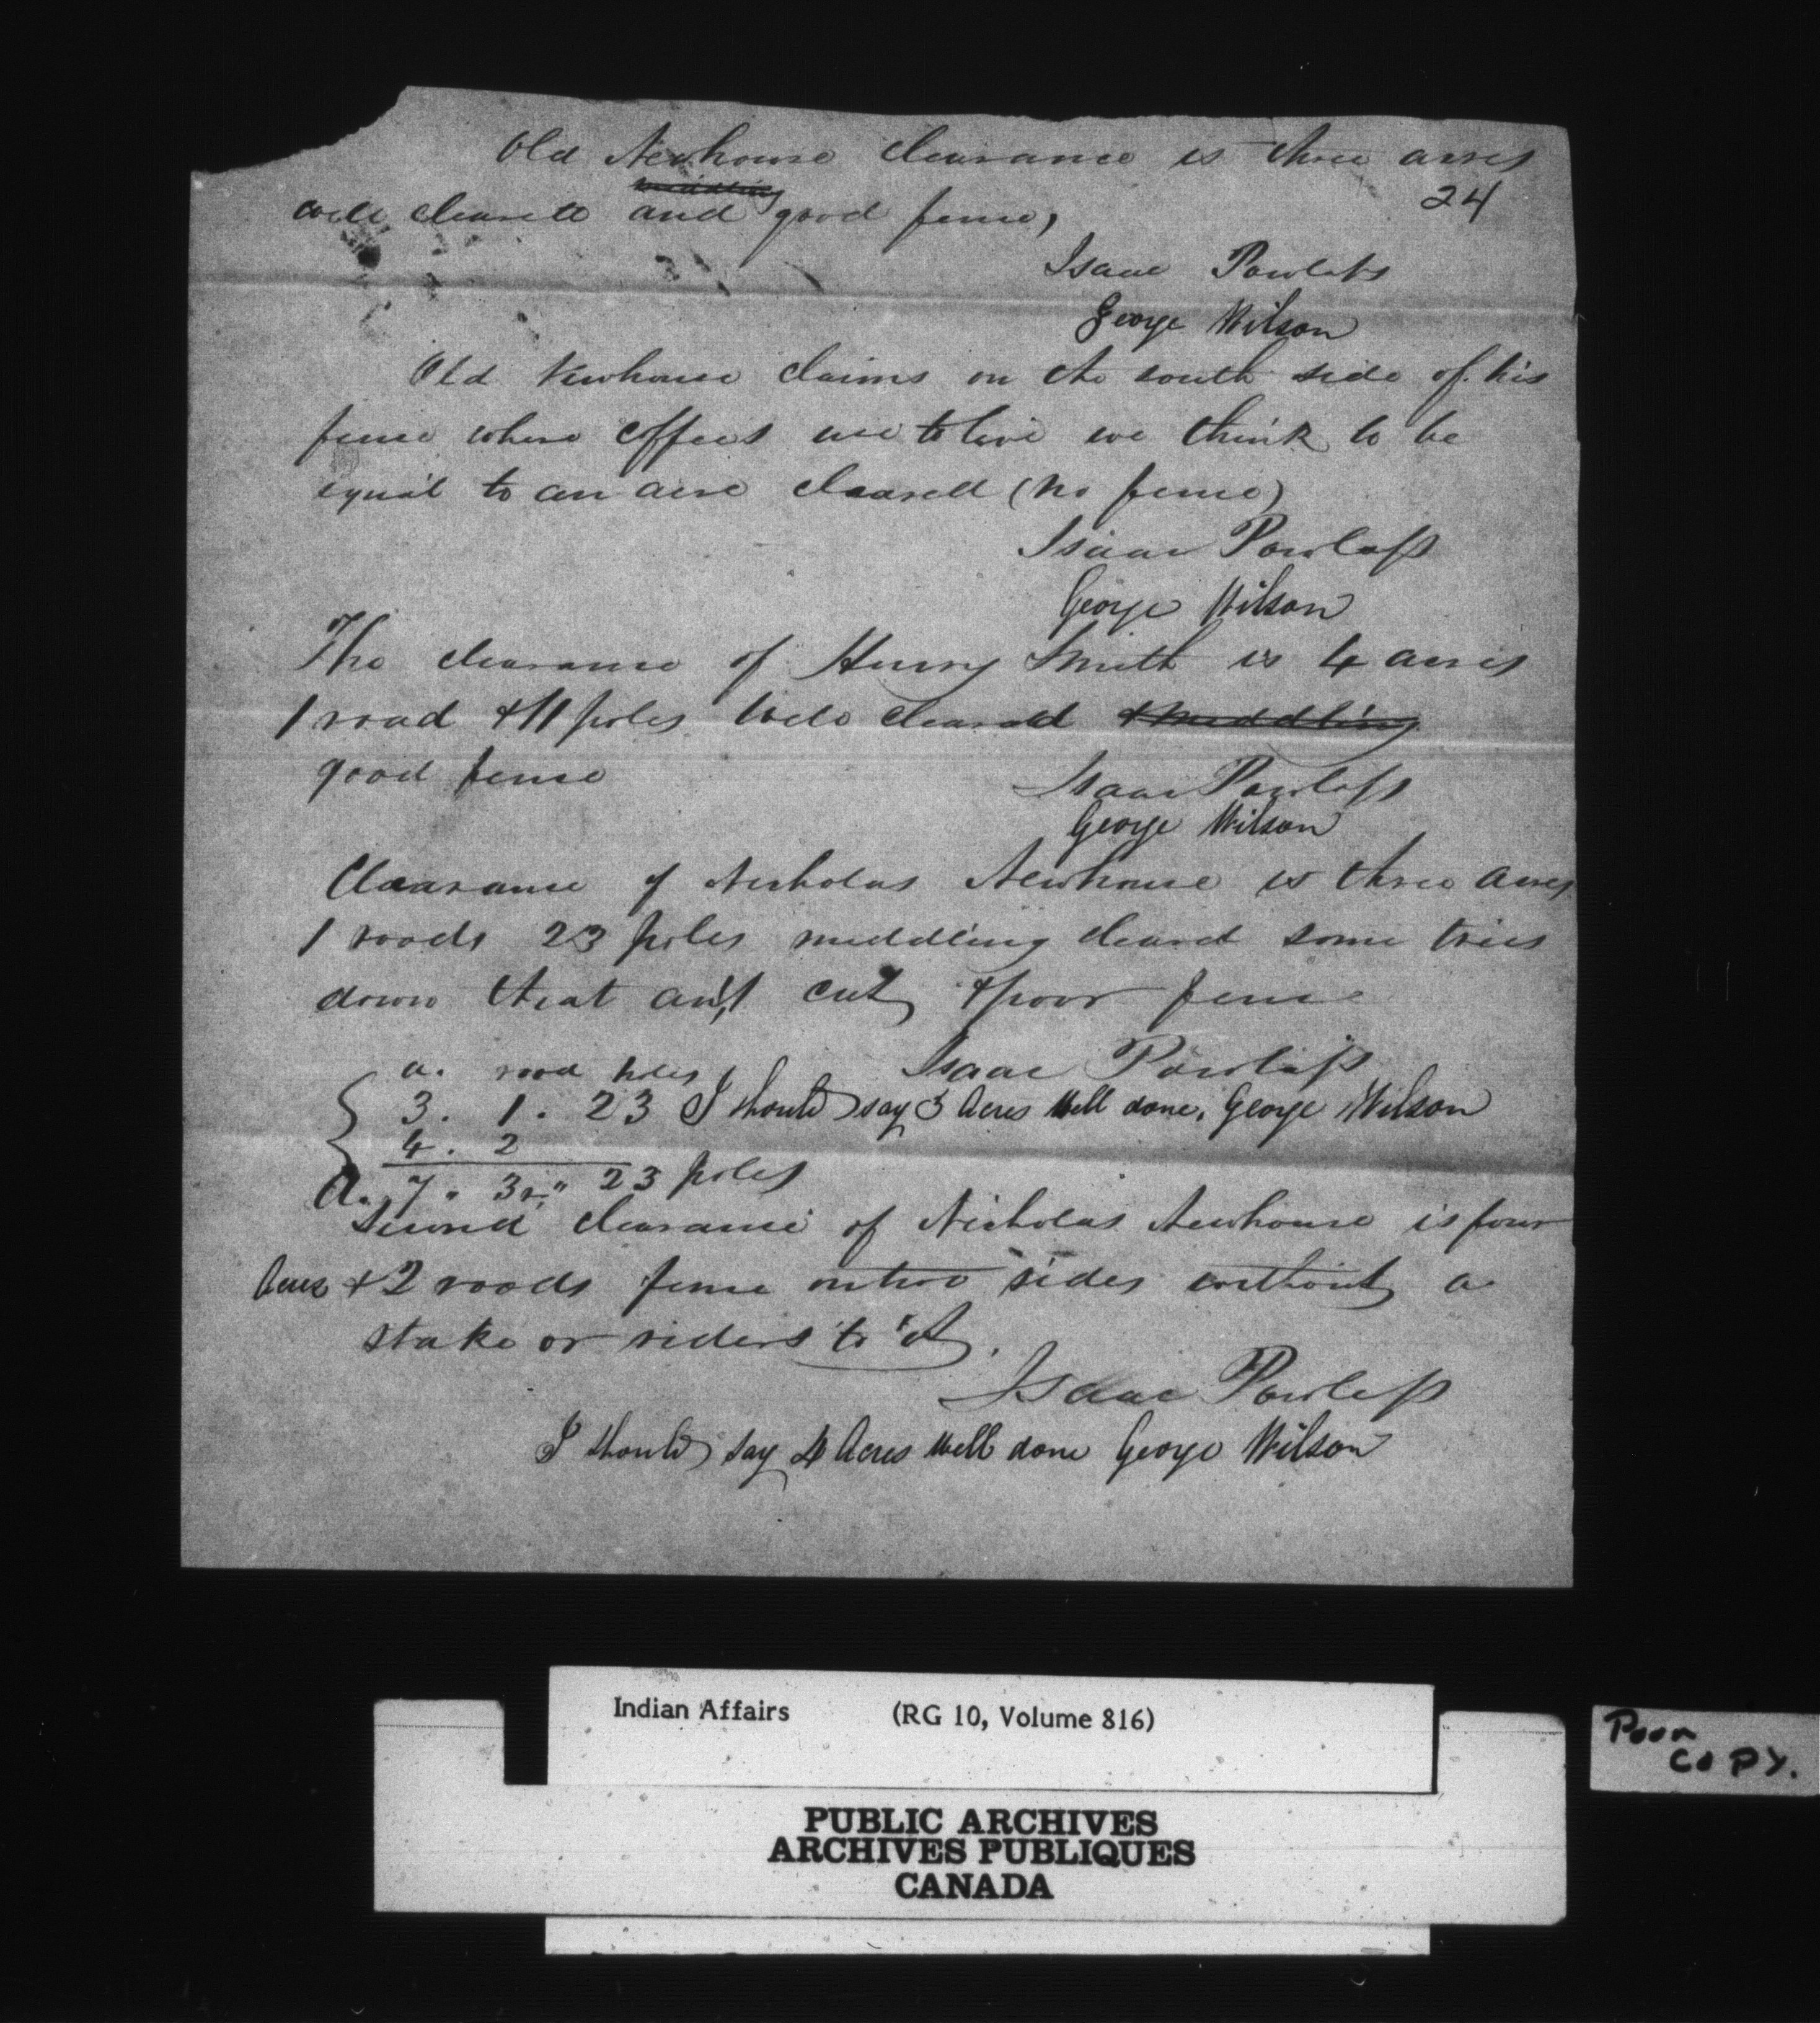 Old Newhouse clearance is three acres
24
well cleared and good fence,
Isaac Powless
George Wilson
Old Newhouse claims on the south side of his
fence where coffees use to live we think to be
equal to an acre cleared (no fence)
Isaac Powless
George Wilson
The clearance of Henry Smith is 4 acres
1 rood & 11 poles well cleared & middling
good fence
Isaac Powless
George Wilson
Clearance of Nicholas Newhouse is three acres
1 roods 23 poles middling cleard some trees
down that an't cut, & poor fence
Isaac Powless
a. rood poles
3. 1. 23 I should say 3 Acres Well done. George Wilson
4. 2
A. 7 " 3r. " 23 poles
Second clearance of Nicholas Newhouse is four
Acres & 2 roods fence on two sides without a
stake or riders to it.
Isaac Powless
I should say 4 Acres Well done George Wilson
Indian Affairs (RG 10, Volume 816)
PUBLIC ARCHIVES
ARCHIVES PUBLIQUES
CANADA
Poor
COPY.